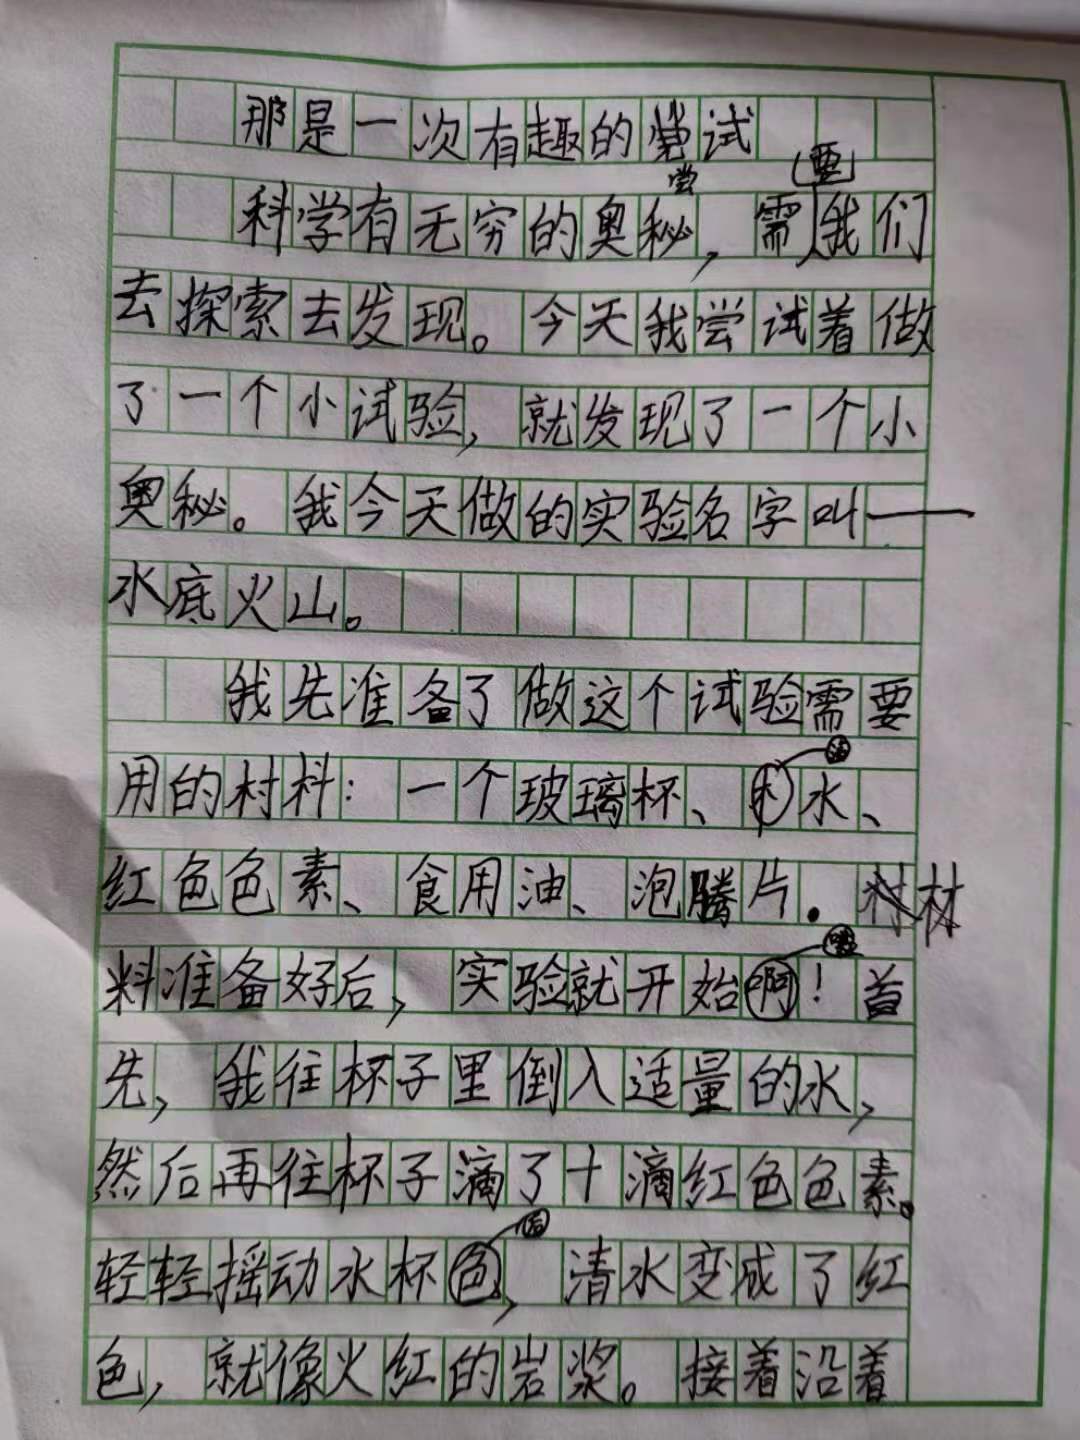 那是一次有趣的尝试
尝
(要)
科学有无穷的奥秘,需我们
去探索去发现。今天我尝试着做
了一个小试验,就发现了一个小
奥秘。我今天做的实验名字叫——
水底火山。
我先准备了做这个试验需要
用的材料:一个玻璃杯、水、
红色色素、食用油、泡腾片。材
料准备好后,实验就开始啊!首
先,我往杯子里倒入适量的水,
然后再往杯子滴了十滴红色色素。
轻轻摇动水杯色,清水变成了红
色,就像火红的岩浆。接着沿着